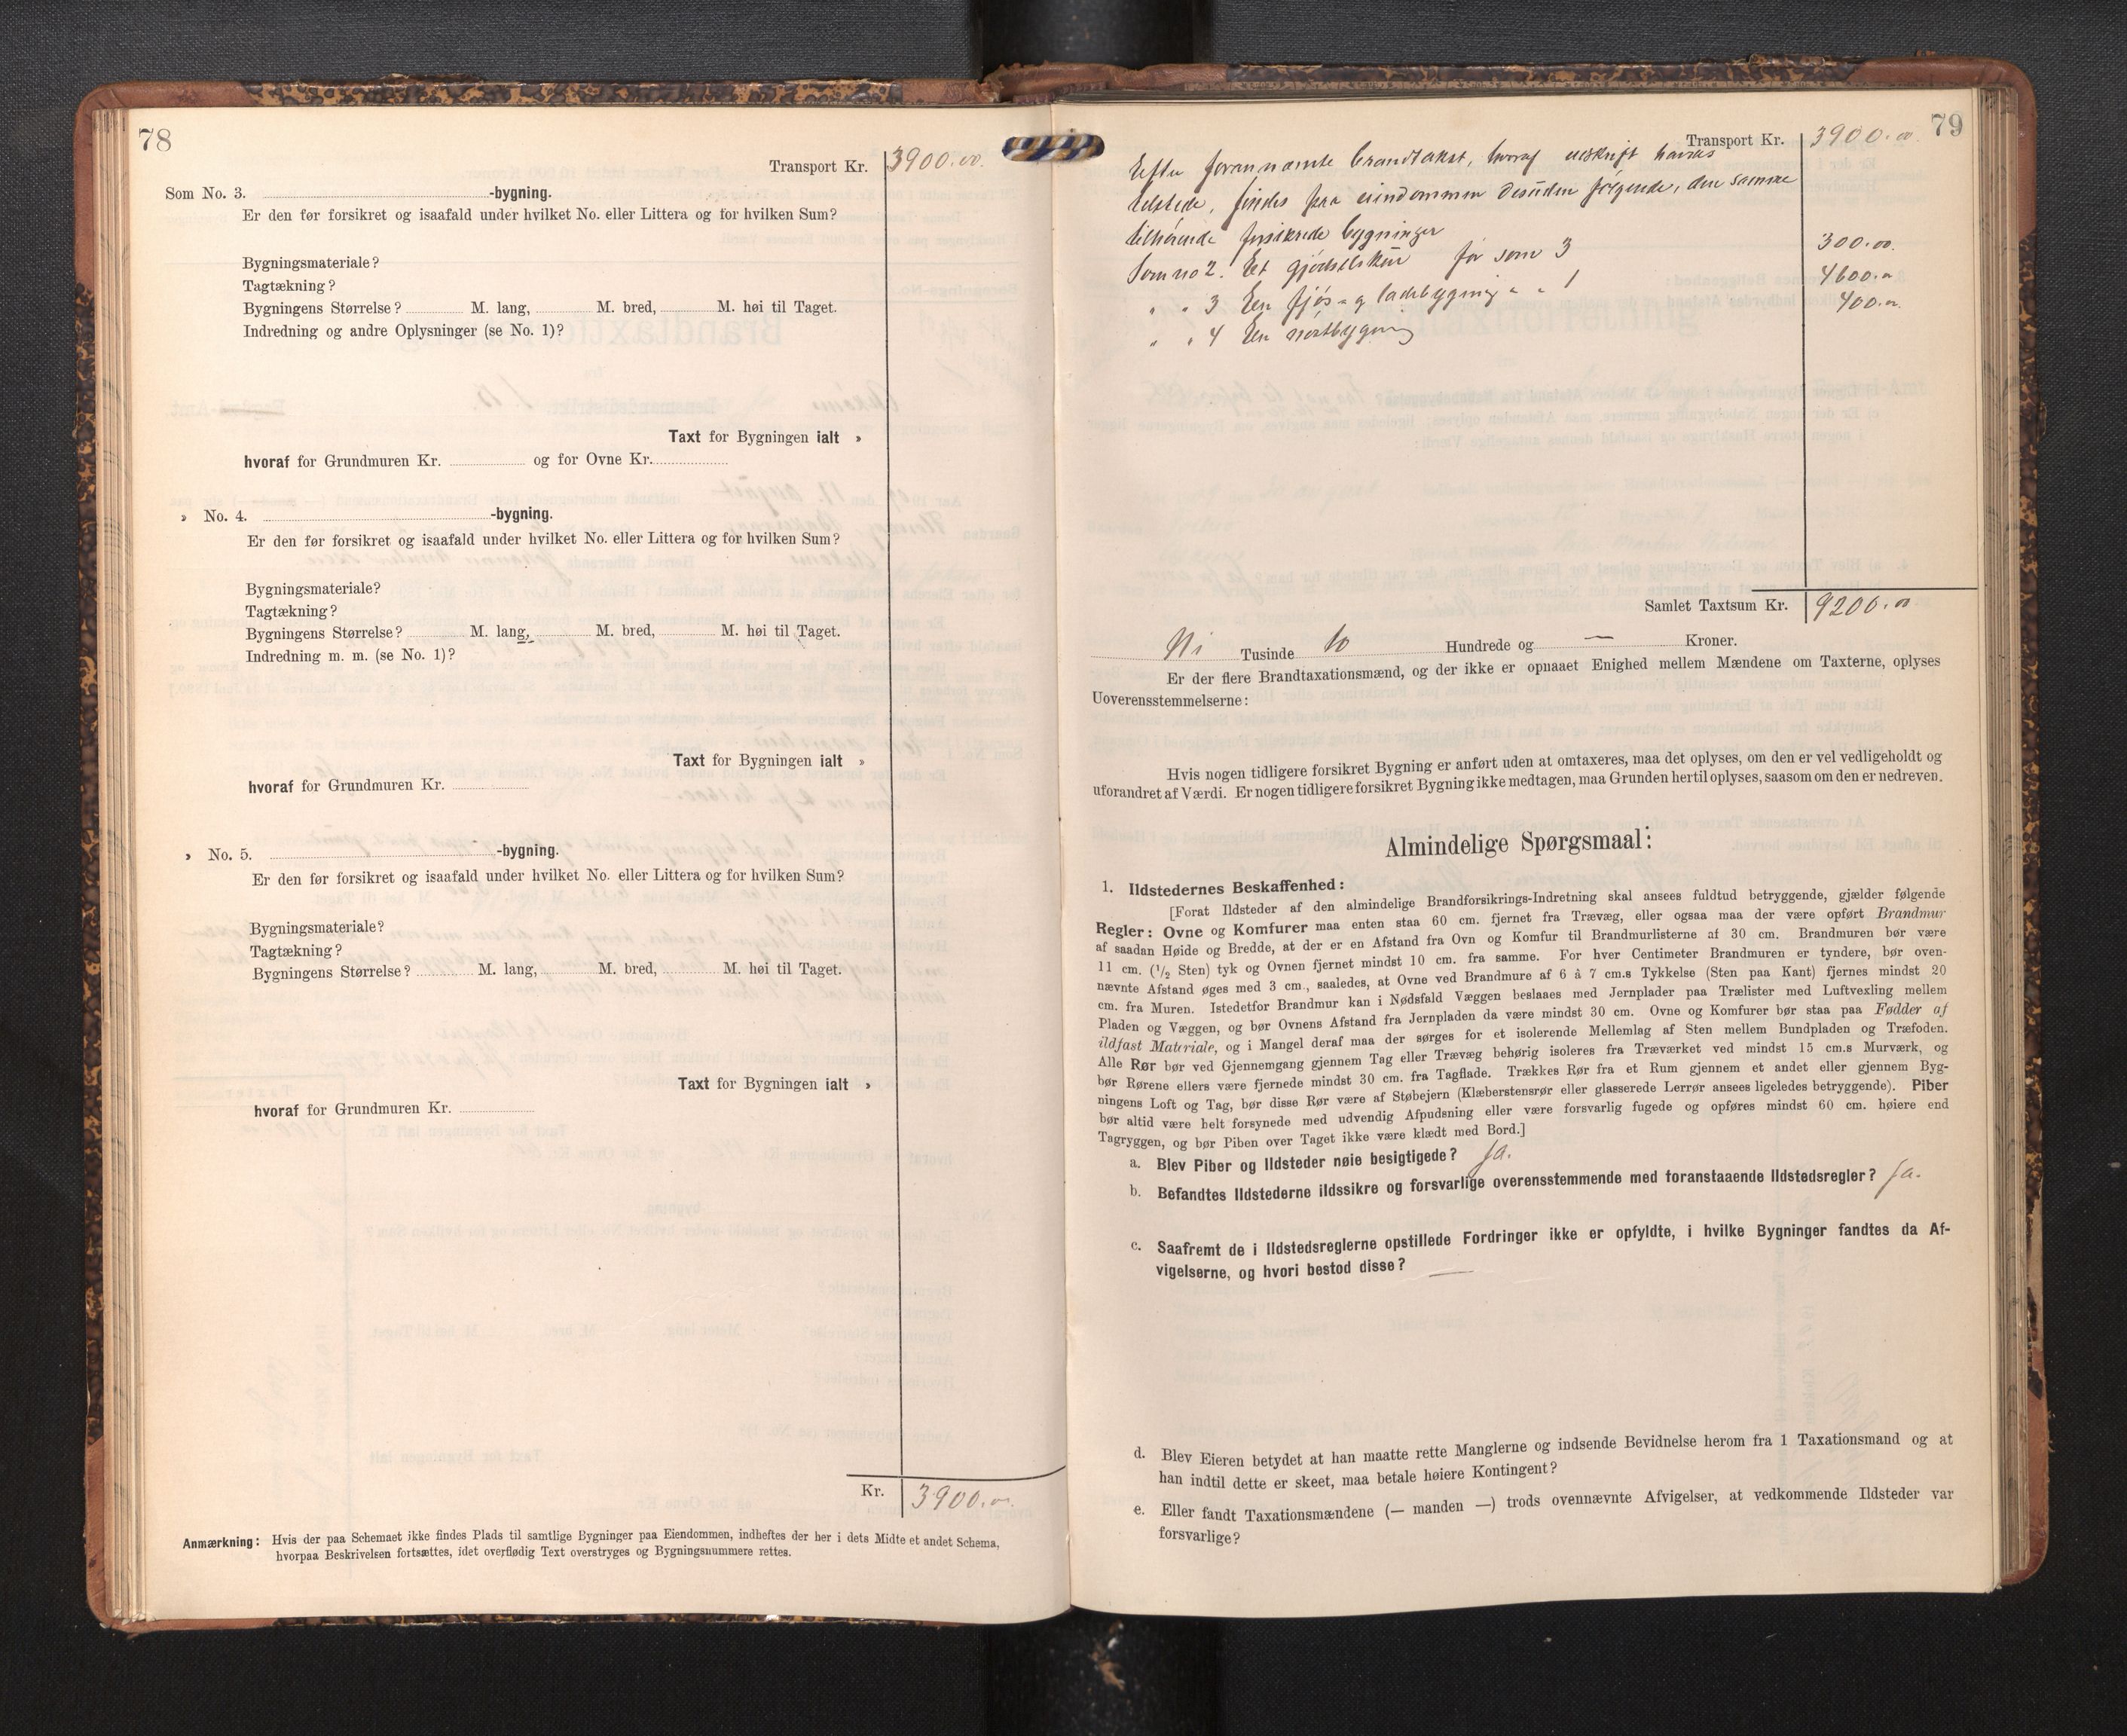 78
Transport Kr. 3900.00.
Som No. 3. -bygning.
Er den før forsikret og isaafald under hvilket No. eller Littera og for hvilken Sum?
Bygningsmateriale?
Tagtækning?
Bygningens Størrelse? M. lang, M. bred, M. høi til Taget.
Indredning og andre Oplysninger (se No. 1)?
Taxt for Bygningen ialt »
hvoraf for Grundmuren Kr. og for Ovne Kr.
» No. 4. -bygning.
Er den før forsikret og isaafald under hvilket No. eller Littera og for hvilken Sum?
Bygningsmateriale?
Tagtækning?
Bygningens Størrelse? M. lang, M. bred, M. høi til Taget.
Indredning m. m. (se No. 1)?
Taxt for Bygningen ialt »
hvoraf for Grundmuren Kr.
» No. 5. -bygning.
Er den før forsikret og isaafald under hvilket No. eller Littera og for hvilken Sum?
Bygningsmateriale?
Tagtækning?
Bygningens Størrelse? M. lang, M. bred, M. høi til Taget.
Taxt for Bygningen ialt »
hvoraf for Grundmuren Kr.
Kr. 3900.00.
Anmærkning: Hvis der paa Schemaet ikke findes Plads til samtlige Bygninger paa Eiendommen, indheftes der her i dets Midte et andet Schema,
hvorpaa Beskrivelsen fortsættes, idet overflødig Text overstryges og Bygningsnummere rettes.
79
Transport Kr. 3900.00
Efter forannævnte brandtakst, hvoraf udskrift havdes
tilstede, findes paa eiendommen desuden følgende, den samme
tilhørende forsikrede bygninger
Som no 2. Et gjødselskur før som 3 300.00.
" " 3 En fjøs- og ladebygning " " 1 4600.00
" " 4 En nøstbygning 400.00.
Samlet Taxtsum Kr. 9200.00
Ni Tusinde to Hundrede og — Kroner.
Er der flere Brandtaxationsmænd, og der ikke er opnaaet Enighed mellem Mændene om Taxterne, oplyses
Uoverensstemmelserne:
Hvis nogen tidligere forsikret Bygning er anført uden at omtaxeres, maa det oplyses, om den er vel vedligeholdt og
uforandret af Værdi. Er nogen tidligere forsikret Bygning ikke medtagen, maa Grunden hertil oplyses, saasom om den er nedreven.
Almindelige Spørgsmaal:
1. Ildstedernes Beskaffenhed:
[Forat Ildsteder af den almindelige Brandforsikrings-Indretning skal ansees fuldtud betryggende, gjælder følgende
Regler: Ovne og Komfurer maa enten staa 60 cm. fjernet fra Trævæg, eller ogsaa maa der være opført Brandmur
af saadan Høide og Bredde, at der er en Afstand fra Ovn og Komfur til Brandmurlisterne af 30 cm. Brandmuren bør være
11 cm. (1/2 Sten) tyk og Ovnen fjernet mindst 10 cm. fra samme. For hver Centimeter Brandmuren er tyndere, bør oven-
nævnte Afstand øges med 3 cm., saaledes, at Ovne ved Brandmure af 6 à 7 cm.s Tykkelse (Sten paa Kant) fjernes mindst 20
cm. fra Muren. Istedetfor Brandmur kan i Nødsfald Væggen beslaaes med Jernplader paa Trælister med Luftvexling mellem
Pladen og Væggen, og bør Ovnens Afstand fra Jernpladen da være mindst 30 cm. Ovne og Komfurer bør staa paa Fødder af
ildfast Materiale, og i Mangel deraf maa der sørges for et isolerende Mellemlag af Sten mellem Bundpladen og Træfoden.
Alle Rør bør ved Gjennemgang gjennem Tag eller Trævæg behørig isoleres fra Træværket ved mindst 15 cm.s Murværk, og
bør Rørene ellers være fjernede mindst 30 cm. fra Tagflade. Trækkes Rør fra et Rum gjennem et andet eller gjennem Byg-
ningens Loft og Tag, bør disse Rør være af Støbejern (Klæberstensrør eller glasserede Lerrør ansees ligeledes betryggende). Piber
bør altid være helt forsynede med udvendig Afpudsning eller være forsvarlig fugede og opføres mindst 60 cm. høiere end
Tagryggen, og bør Piben over Taget ikke være klædt med Bord.]
a. Blev Piber og Ildsteder nøie besigtigede? Ja.
b. Befandtes Ildstederne ildssikre og forsvarlige overensstemmende med foranstaaende Ildstedsregler? Ja.
c. Saafremt de i Ildstedsreglerne opstillede Fordringer ikke er opfyldte, i hvilke Bygninger fandtes da Af-
vigelserne, og hvori bestod disse? —
d. Blev Eieren betydet at han maatte rette Manglerne og indsende Bevidnelse herom fra 1 Taxationsmand og at
han indtil dette er skeet, maa betale høiere Kontingent?
e. Eller fandt Taxationsmændene (— manden —) trods ovennævnte Afvigelser, at vedkommende Ildsteder var
forsvarlige?